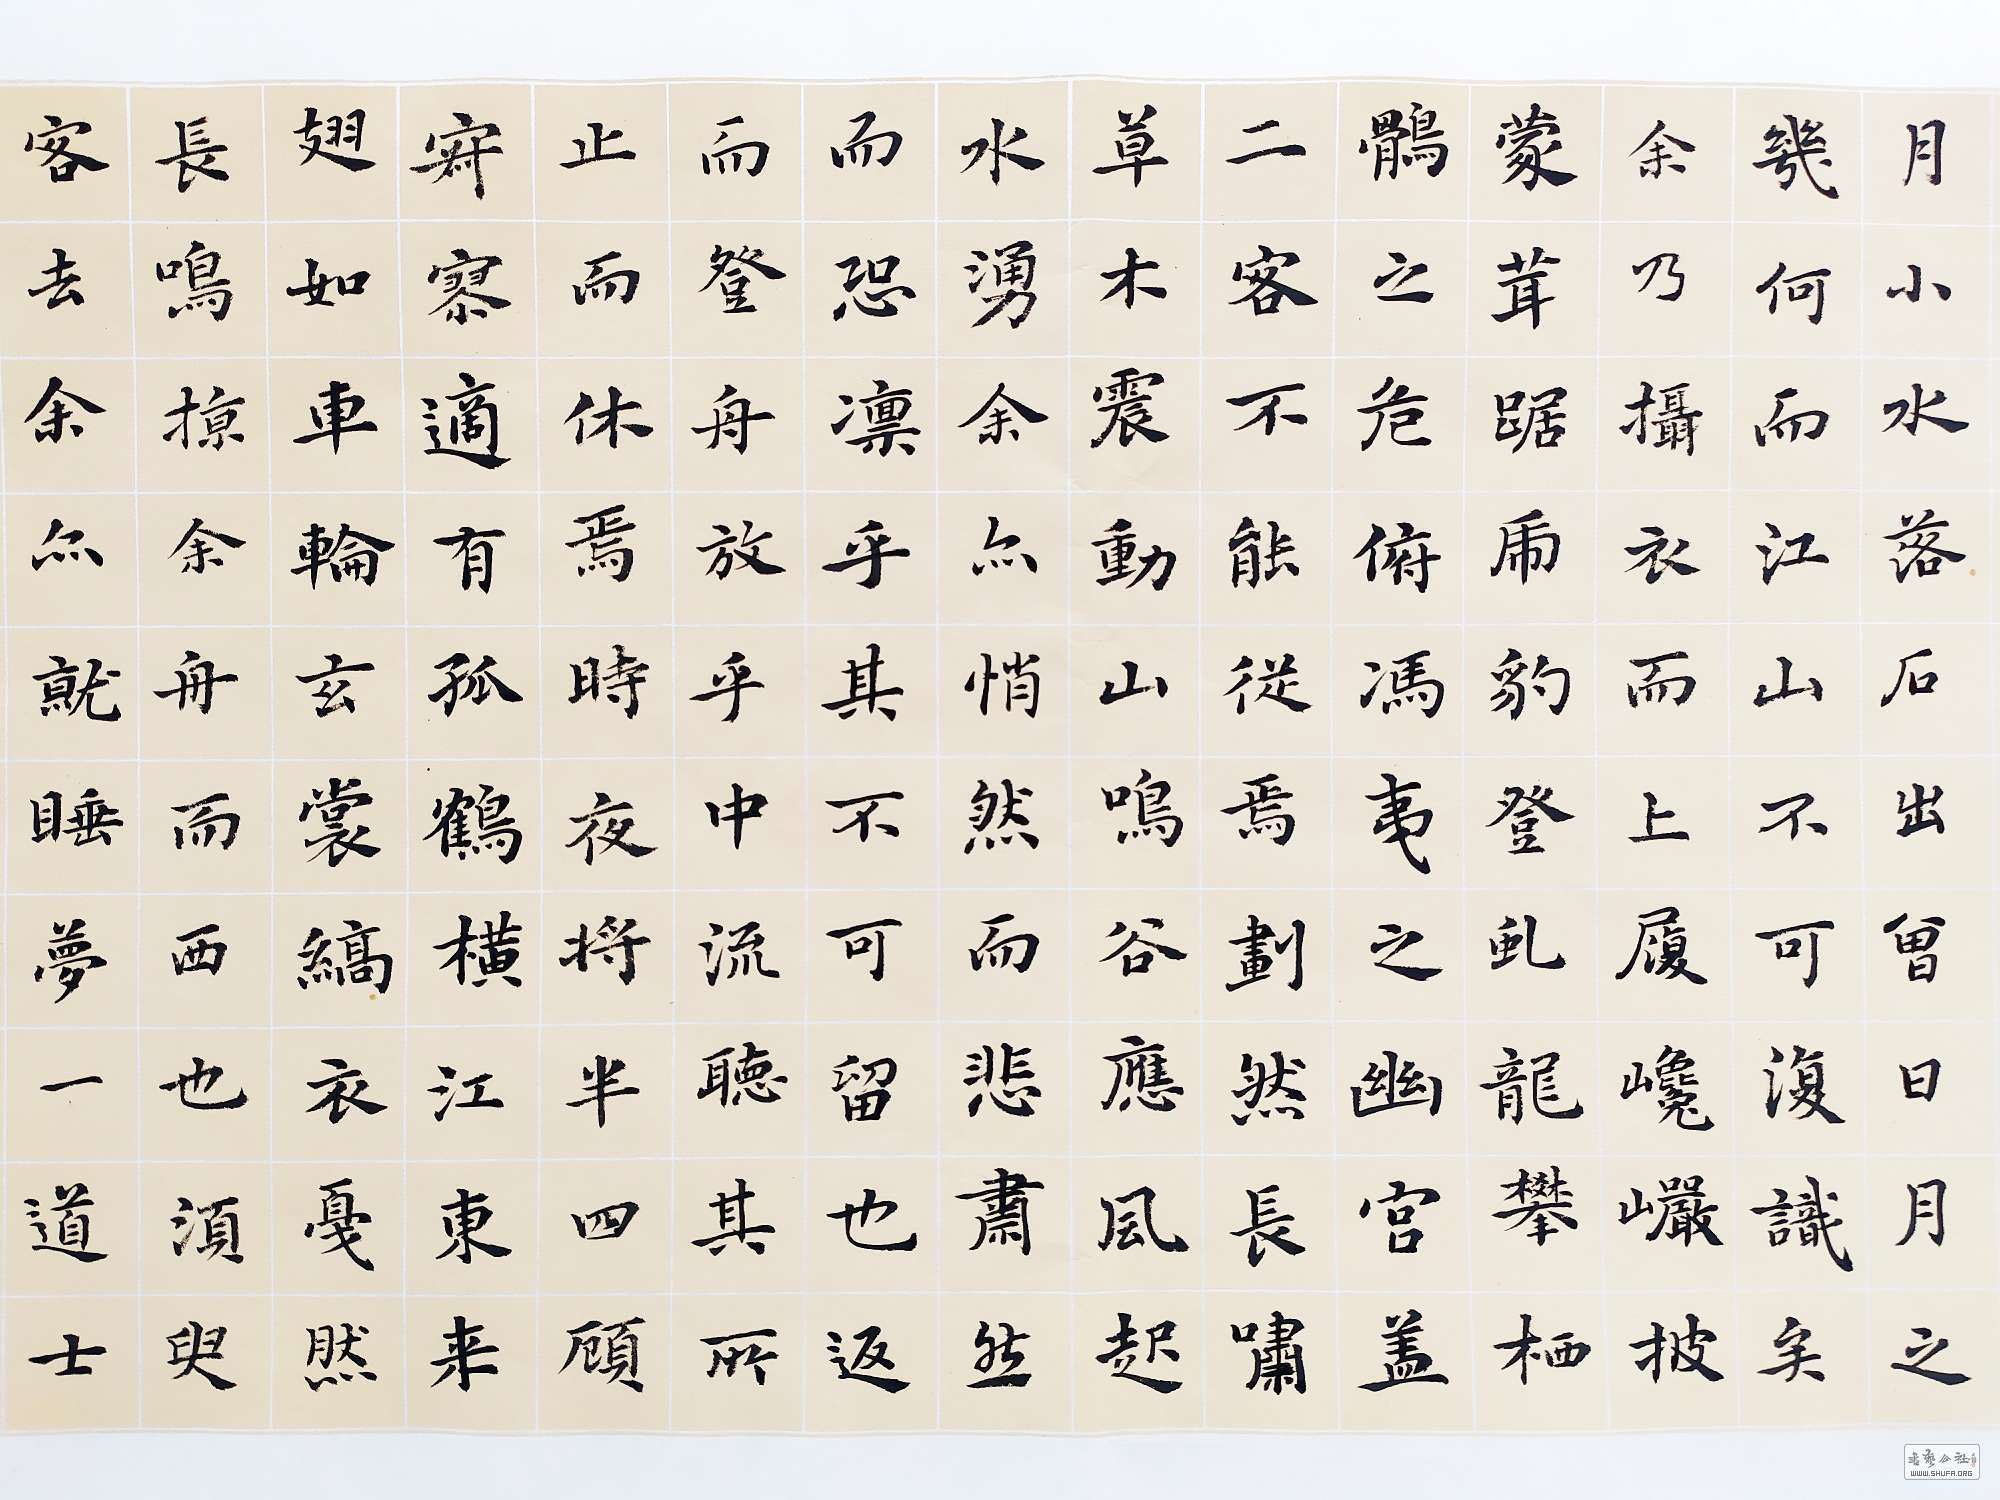 月小水落石出曾日月之
幾何而江山不可復識矣
余乃攝衣而上履巉巖披
蒙茸踞虎豹登虬龍攀栖
鶻之危俯馮夷之幽宫盖
二客不能從焉劃然長嘯
草木震動山鳴谷應風起
水湧余亦悄然而悲肅然
而恐凛乎其不可留也返
而登舟放乎中流聽其所
止而休焉時夜将半四顧
寂寥適有孤鶴横江東来
翅如車輪玄裳縞衣戛然
長鳴掠余舟而西也須臾
客去余亦就睡夢一道士
書藝公社
WWW.SHUFA.ORG